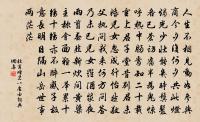 人生不相見動如參與
商今夕復何夕共此燈
燭光少壯能幾時鬢髮
各已蒼訪舊半為鬼驚
呼熱中腸焉知二十載
重上君子堂昔別君未婚
兒女忽成行怡然敬父
執問我來何方問答
乃未已兒女羅酒漿
夜雨剪春韭新炊間黃粱
主稱會面難一舉累十
觴十觴亦不醉感子故
意長明日隔山岳世事
兩茫茫